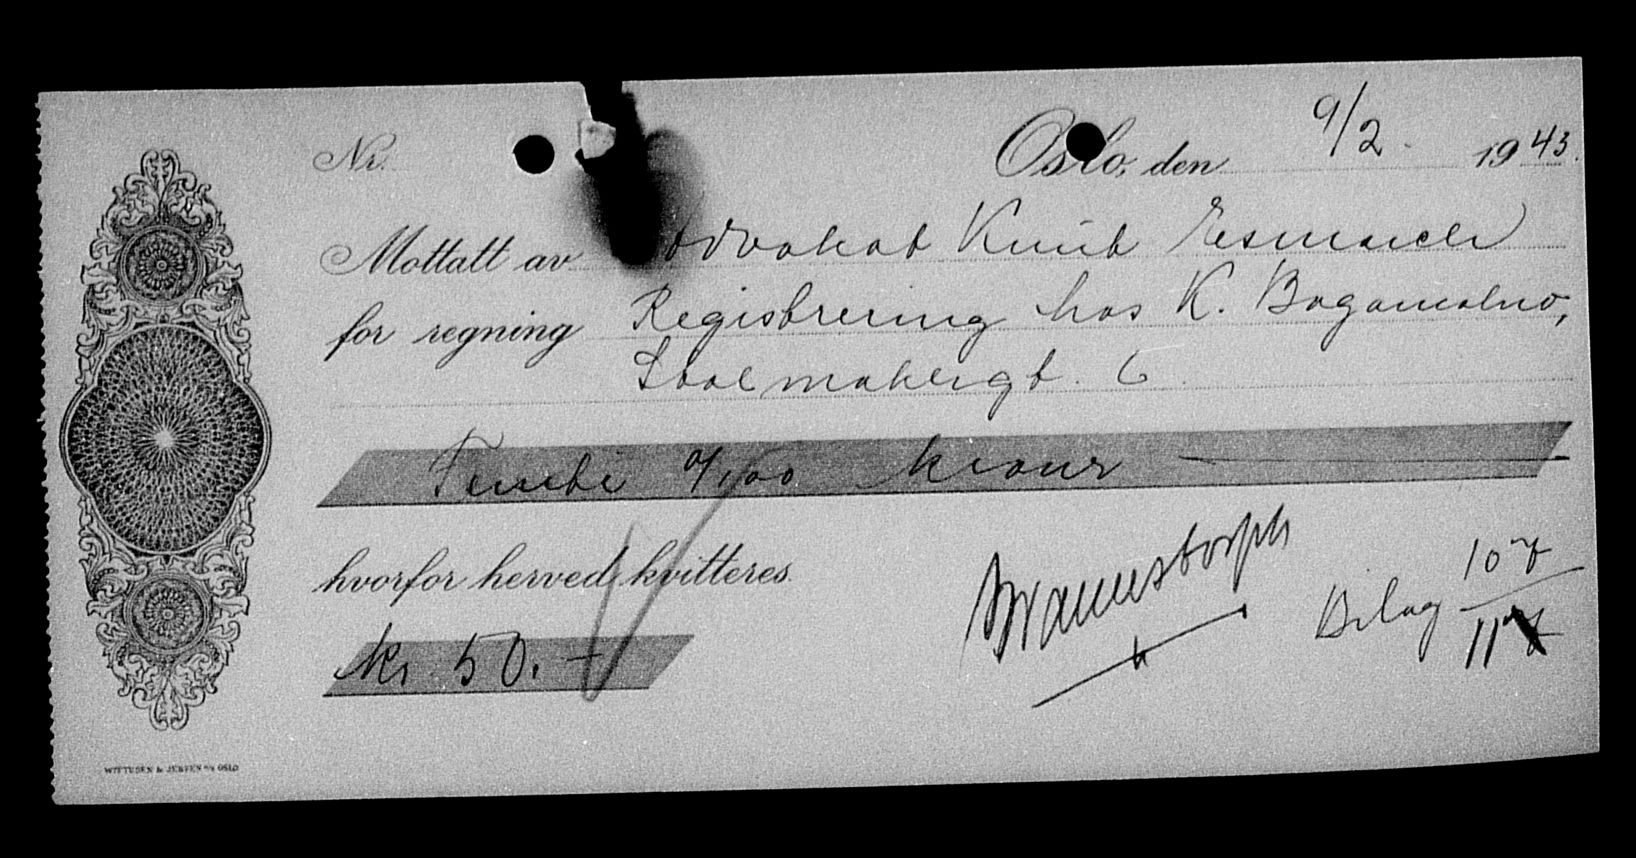 Nr.
Oslo, den 9/2. 1943.
Mottatt av Advokat Knut Esmarch
for regning Registrering hos K. Bogomolno,
Stolmakergt. 6.
Femti 0/100 kroner
hvorfor herved kvitteres.
Kr. 50.-
Bilag 10
11
WITTUSEN & JENSEN A/S OSLO